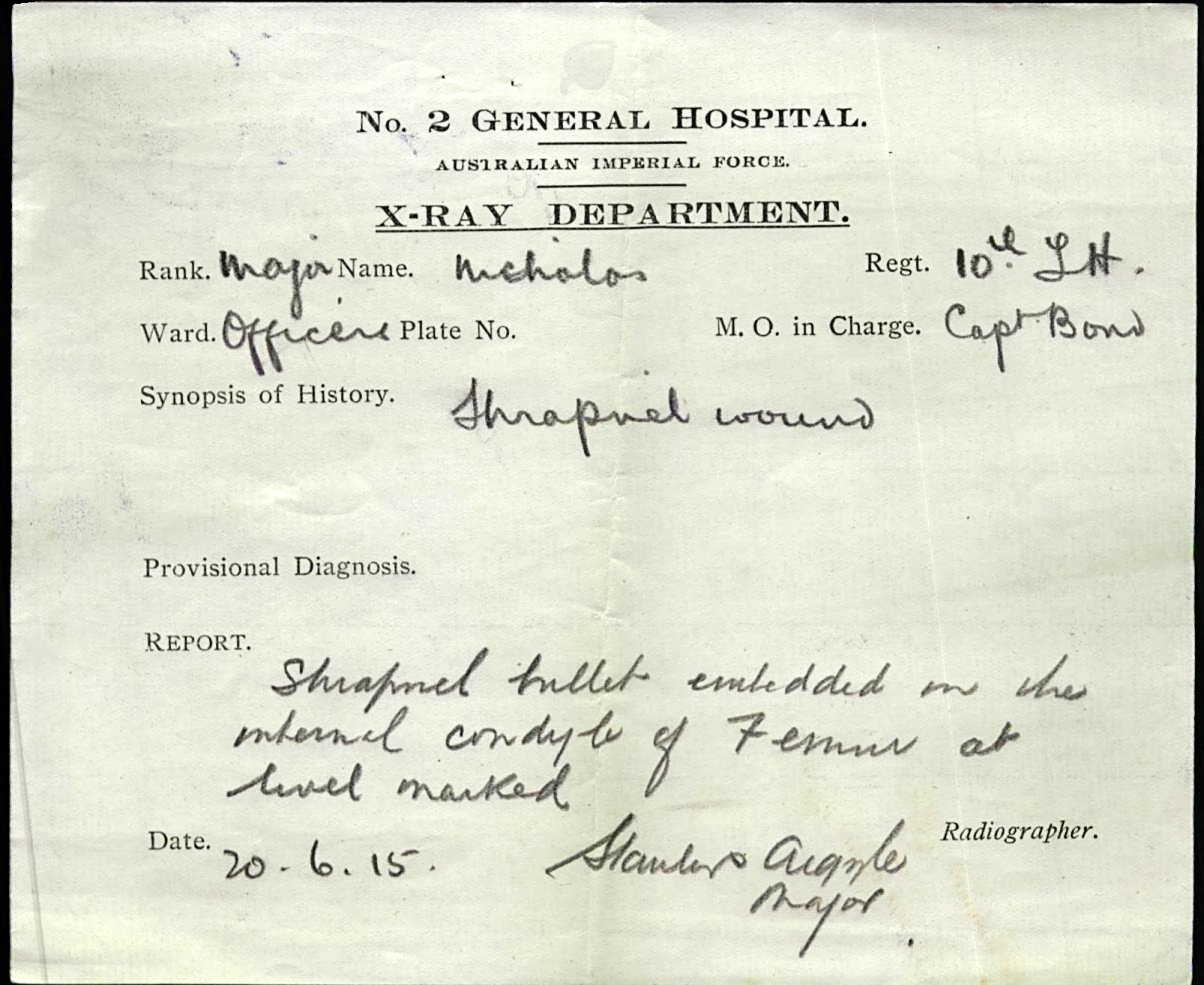 No. 2 GENERAL HOSPITAL.
AUSTRALIAN IMPERIAL FORCE.
X-RAY DEPARTMENT.
Rank. Major Name. Nicholas Regt. 10th L H.
Ward. Officers Plate No. M. O. in Charge. Capt Bond
Synopsis of History. Shrapnel wound
Provisional Diagnosis.
REPORT.
Shrapnel bullet embedded in the
internal condyle of Femur at
level marked
Date. 20.6.15. Stanley S Argyle Radiographer.
Major